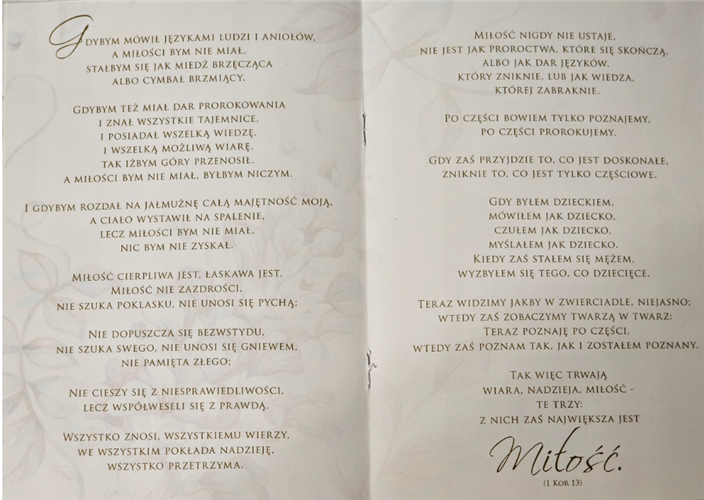 GDYBYM MÓWIŁ JĘZYKAMI LUDZI I ANIOŁÓW,
A MIŁOŚCI BYM NIE MIAŁ,
STAŁBYM SIĘ JAK MIEDŹ BRZĘCZĄCA
ALBO CYMBAŁ BRZMIĄCY.
GDYBYM TEŻ MIAŁ DAR PROROKOWANIA
I ZNAŁ WSZYSTKIE TAJEMNICE,
I POSIADAŁ WSZELKĄ WIEDZĘ,
I WSZELKĄ MOŻLIWĄ WIARĘ,
TAK IŻBYM GÓRY PRZENOSIŁ,
A MIŁOŚCI BYM NIE MIAŁ, BYŁBYM NICZYM.
I GDYBYM ROZDAŁ NA JAŁMUŻNĘ CAŁĄ MAJĘTNOŚĆ MOJĄ,
A CIAŁO WYSTAWIŁ NA SPALENIE,
LECZ MIŁOŚCI BYM NIE MIAŁ,
NIC BYM NIE ZYSKAŁ.
MIŁOŚĆ CIERPLIWA JEST, ŁASKAWA JEST.
MIŁOŚĆ NIE ZAZDROŚCI,
NIE SZUKA POKLASKU, NIE UNOSI SIĘ PYCHĄ;
NIE DOPUSZCZA SIĘ BEZWSTYDU,
NIE SZUKA SWEGO, NIE UNOSI SIĘ GNIEWEM,
NIE PAMIĘTA ZŁEGO;
NIE CIESZY SIĘ Z NIESPRAWIEDLIWOŚCI,
LECZ WSPÓŁWESELI SIĘ Z PRAWDĄ.
WSZYSTKO ZNOSI, WSZYSTKIEMU WIERZY,
WE WSZYSTKIM POKŁADA NADZIEJĘ,
WSZYSTKO PRZETRZYMA.
MIŁOŚĆ NIGDY NIE USTAJE,
NIE JEST JAK PROROCTWA, KTÓRE SIĘ SKOŃCZĄ,
ALBO JAK DAR JĘZYKÓW,
KTÓRY ZNIKNIE, LUB JAK WIEDZA,
KTÓREJ ZABRAKNIE.
PO CZĘŚCI BOWIEM TYLKO POZNAJEMY,
PO CZĘŚCI PROROKUJEMY.
GDY ZAŚ PRZYJDZIE TO, CO JEST DOSKONAŁE,
ZNIKNIE TO, CO JEST TYLKO CZĘŚCIOWE.
GDY BYŁEM DZIECKIEM,
MÓWIŁEM JAK DZIECKO,
CZUŁEM JAK DZIECKO,
MYŚLAŁEM JAK DZIECKO,
KIEDY ZAŚ STAŁEM SIĘ MĘŻEM,
WYZBYŁEM SIĘ TEGO, CO DZIECIĘCE.
TERAZ WIDZIMY JAKBY W ZWIERCIADLE, NIEJASNO;
WTEDY ZAŚ ZOBACZYMY TWARZĄ W TWARZ:
TERAZ POZNAJĘ PO CZĘŚCI,
WTEDY ZAŚ POZNAM TAK, JAK I ZOSTAŁEM POZNANY.
TAK WIĘC TRWAJĄ
WIARA, NADZIEJA, MIŁOŚĆ -
TE TRZY:
Z NICH ZAŚ NAJWIĘKSZA JEST
Miłość.
(1 KOR 13)